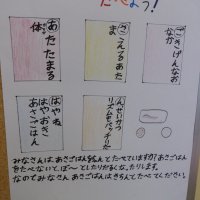 たべよう!
あたたまる
体
さえてるあた
ま
ごきげんなお
なか
はやね
はやおき
あさごはん
んせいかつ
リズムもバッチリだ
みなさんは、あさごはんをたべていますか?あさごはん
をたべないと、ぼーっとしたりだるくなったりします。
なのでみなさん あさごはんはきちんとたべてください。